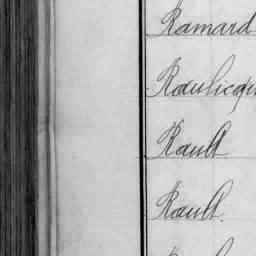 Ramard
Raulicqu
Rault
Rault.